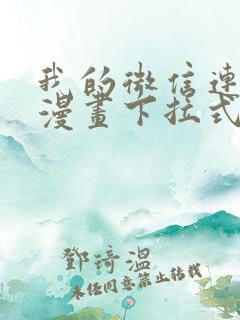 我的微信連
漫畫下拉式
鄧琦溫
未經同意禁止轉載